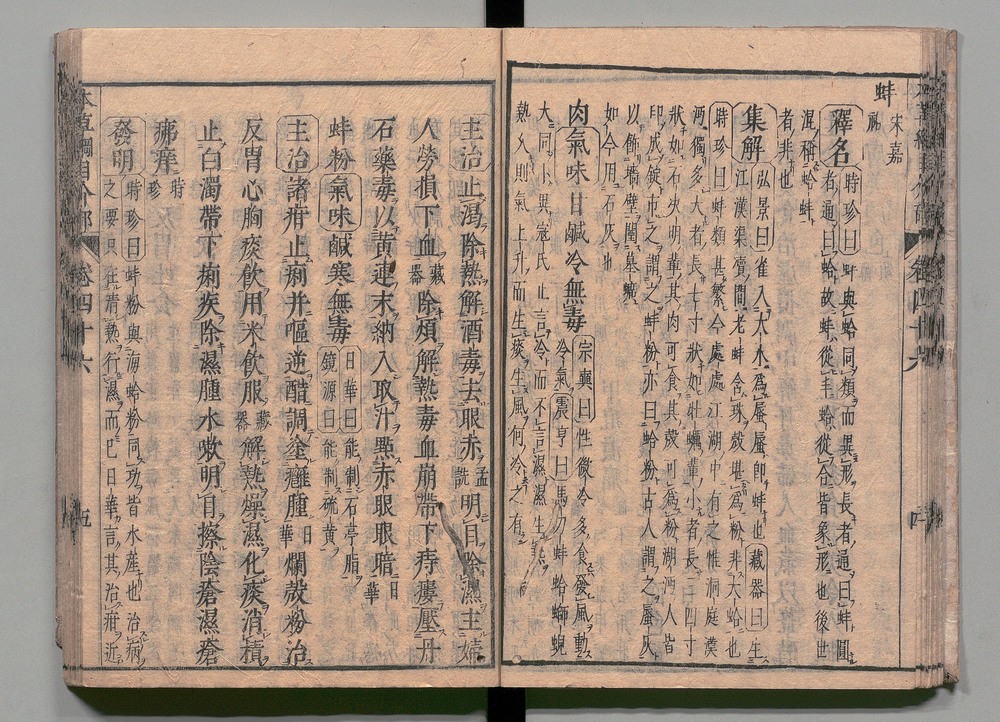 蚌 宋嘉祐
釋名 時珍曰蚌與蛤同類而異形長者通曰蚌圓
者通曰蛤故蚌從丰蛤從合皆象形也後世
混稱蛤蚌
者非也
集解 弘景曰雀入大水爲蜃蜃即蚌也藏器曰生
江漢渠瀆間老蚌含珠殼堪爲粉非大蛤也
時珍曰蚌類甚繁今處處江湖中有之惟洞庭漢
沔獨多大者長七寸狀如牡蠣輩小者長三四寸
狀如石決明輩其肉可食其殼可爲粉湖沔人皆
印成錠市之謂之蚌粉亦曰蛤粉古人謂之蜃灰
以飾墻壁闉墓壙
如今用石灰也
肉氣味甘鹹冷無毒 宗奭曰性微冷多食發風動
冷氣震亨曰馬刀蚌蛤螄蜆
大同小異寇氏止言冷而不言濕濕生熱
熱久則氣上升而生痰生風何冷之有
主治止渴除熱解酒毒去眼赤孟詵明目除濕主婦
人勞損下血藏器除煩解熱毒血崩帶下痔瘻壓丹
石藥毒以黃連末納入取汁點赤眼眼暗日華
蚌粉氣味鹹寒無毒 日華曰能制石亭脂
鏡源曰能制硫黃
主治諸疳止痢并嘔逆醋調塗癰腫日華爛殼粉治
反胃心胸痰飲用米飲服藏器解熱燥濕化痰消積
止白濁帶下痢疾除濕腫水嗽明目擦陰瘡濕瘡
疿痒時珍
發明 時珍曰蚌粉與海蛤粉同功皆水産也治病
之要只在清熱行濕而已日華言其治疳近